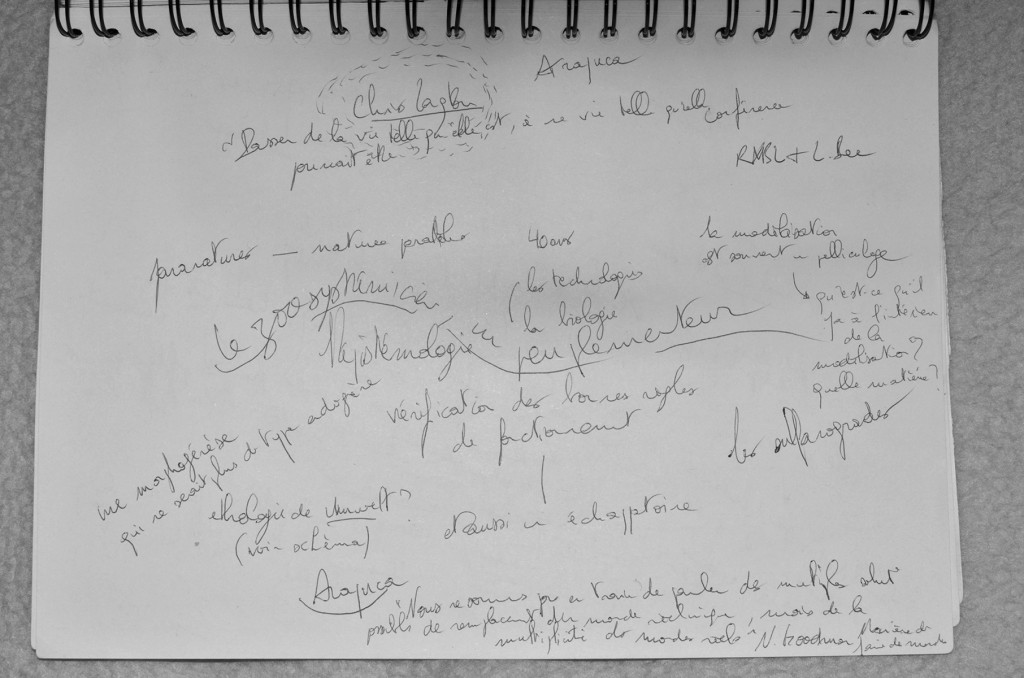 Arajuca
Chris Langton
"Passer de la vie telle qu'elle est, à une vie telle qu'elle
pourrait être"
conférence
RMSL + L. Bec
paranatures — natures
40 ans
la modélisation
est souvent un pelliculage
qu'est-ce qu'il
y a à l'intérieur
de la
modélisation?
quelle matière?
Le zoosystémicien
les technologies
la biologie
l'épistémologie
peuplementeur
vérification des bonnes règles
de fonctionement
les sulfanogrades
une morphogénèse
qui ne serait plus de type adogène
éthologie de Umwelt?
(voir schéma)
et aussi un échappatoire
Arajuca
"Nous ne sommes pas en train de parler des multiples
possibles de remplacement d'un monde unique, mais de la
multiplicité de mondes réels" N. Goodman Manière de
faire des mondes